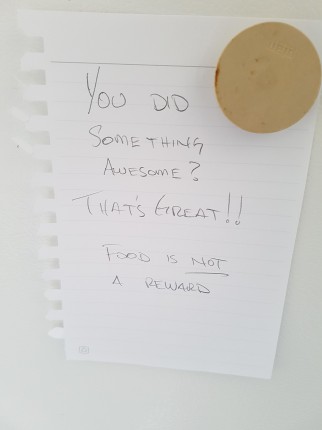 You DID
SOMETHING
AWESOME?
THAT'S GREAT!!
FOOD IS NOT
A REWARD